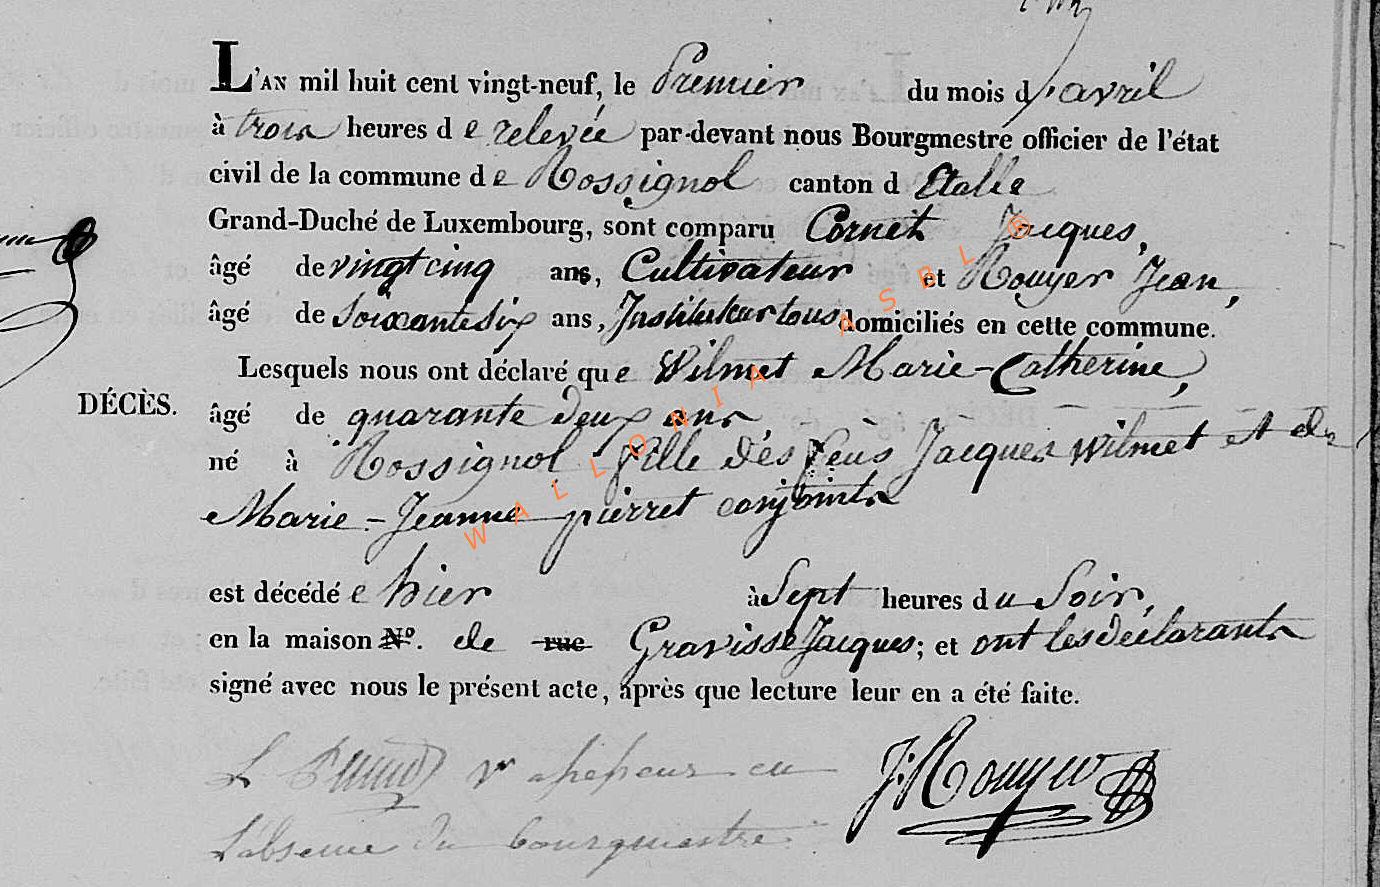 L'AN mil huit cent vingt-neuf, le Premier du mois d'avril
à trois heures de relevée par-devant nous Bourgmestre officier de l'état
civil de la commune de Rossignol canton d Etalle
Grand-Duché de Luxembourg, sont comparu Cornet Jacques,
âgé de vingt cinq ans, Cultivateur et Rouyer Jean,
âgé de Soixante Six ans, Instituteur tous domiciliés en cette commune.
Lesquels nous ont déclaré que Wilmet Marie-Catherine,
DÉCÈS.
âgé de quarante deux ans,
né à Rossignol fille dés feûs Jacques Wilmet et de
Marie-Jeanne pierret conjoints
est décédée hier à Sept heures du Soir,
en la maison Nº. de rue Gravisse Jacques; et ont les déclarants
signé avec nous le présent acte, après que lecture leur en a été faite.
J. Rouyer
L'absence du bourgmestre
WALLONIA ASBL ©